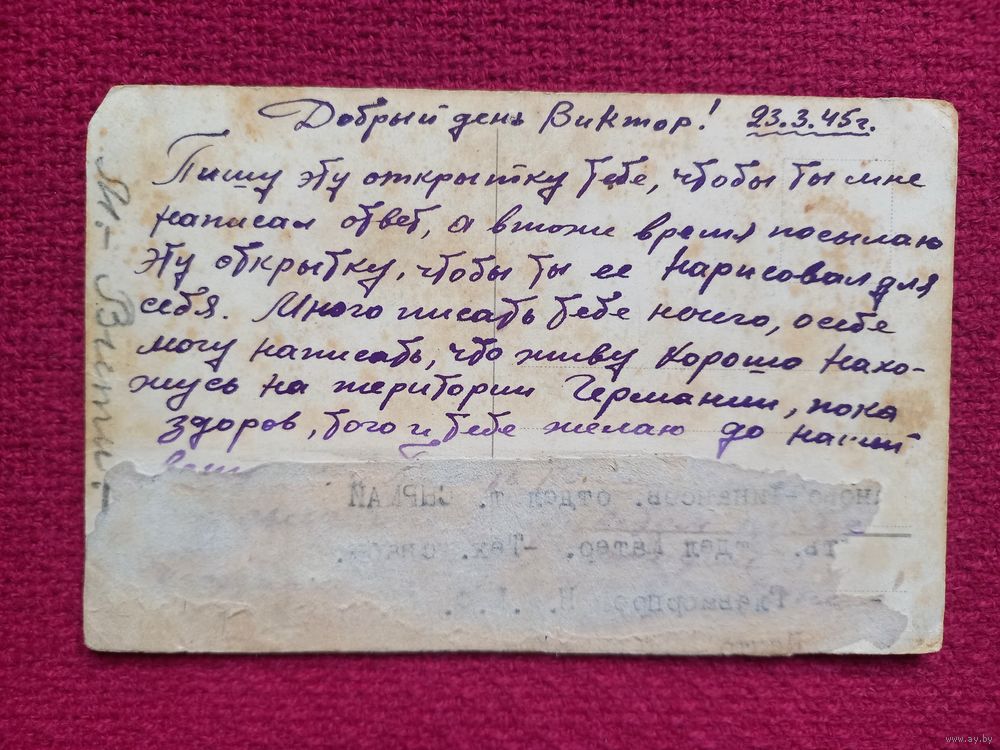 Добрый день Виктор! 23.3.45г.
Пишу эту открытку тебе, чтобы ты мне
написал ответ, а втоже время посылаю
эту открытку, чтобы ты ее нарисовал для
себя. Много писать тебе нечего, осебе
могу написать, что живу хорошо нахо-
жусь на територии Германии, пока
здоров, того и тебе желаю до
отдел т. СЫРКАЙ
www.ay.by